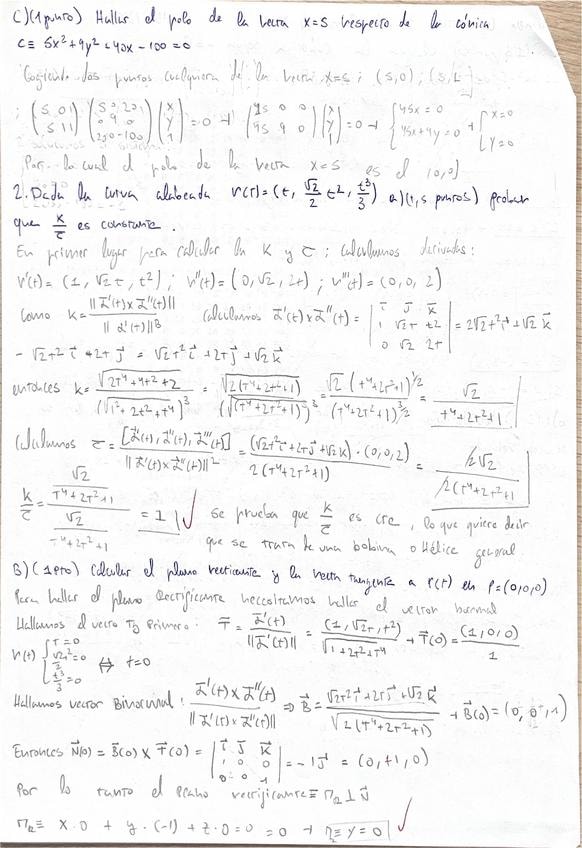 C)(1 punto) Hallar el polo de la recta x=5 respecto de la cónica
C≡ 5x²+9y²+40x-100=0
Cogiendo dos puntos cualquiera de la recta x=5; (5,0); (5,1)
; (5 0 1 / 5 1 1) (5 0 20 / 0 9 0 / 20 0 -100) (x / y / 1) =0 → (45 0 0 / 45 9 0) (x / y / 1) =0 → { 45x=0 / 45x+9y=0 → { x=0 / y=0
Por lo cual el polo de la recta x=5 es el (0,0)
2. Dada la curva alabeada r(t)=(t, √2/2 t², t³/3) a)(1,5 puntos) probar
que K/τ es constante.
En primer lugar para calcular la K y τ; calculamos derivadas:
r'(t) = (1, √2 t, t²); r''(t) = (0, √2, 2t); r'''(t) = (0, 0, 2)
Como K = ||α'(t)×α''(t)|| / ||α'(t)||³ Calculamos α'(t)×α''(t) = | i j k / 1 √2t t² / 0 √2 2t | = 2√2t² i + √2 k
- √2t² i + 2t j = √2t² i + 2t j + √2 k
entonces K = √(2t⁴+4t²+2) / (√(1²+2t²+t⁴))³ = √(2(t⁴+2t²+1)) / (√(t⁴+2t²+1))³ = √2 (t⁴+2t²+1)^1/2 / (t⁴+2t²+1)^3/2 = √2 / t⁴+2t²+1
Calculamos τ = [α'(t), α''(t), α'''(t)] / ||α'(t)×α''(t)||² = (√2t² i + 2t j + √2 k)·(0,0,2) / 2(t⁴+2t²+1) = 2√2 / 2(t⁴+2t²+1)
K/τ = (√2 / t⁴+2t²+1) / (√2 / t⁴+2t²+1) = 1 ✓ se prueba que K/τ es cte, lo que quiere decir
que se trata de una bobina o Hélice general.
B) (1pto) Calcular el plano rectificante y la recta tangente a r(t) en P=(0,0,0)
Para hallar el plano Rectificante necesitamos hallar el vector normal
Hallamos el vector Tg Primero: T = α'(t) / ||α'(t)|| = (1, √2t, t²) / √(1+2t²+t⁴) → T(0) = (1,0,0) / 1
r(t) { t=0 / √2t²/2=0 / t³/3=0 ⇔ t=0
Hallamos vector Binormal: α'(t)×α''(t) / ||α'(t)×α''(t)|| ⇒ B = √2t² i + 2t j + √2 k / √(2(t⁴+2t²+1)) → B(0) = (0, 0, 1)
Entonces N(0) = B(0) × T(0) = | i j k / 1 0 0 / 0 0 1 | = -1j = (0,+1,0)
Por lo tanto el Plano rectificante ≡ π_R ⊥ N
π_R ≡ x·0 + y·(-1) + z·0 = 0 = 0 → π_R ≡ y=0 ✓